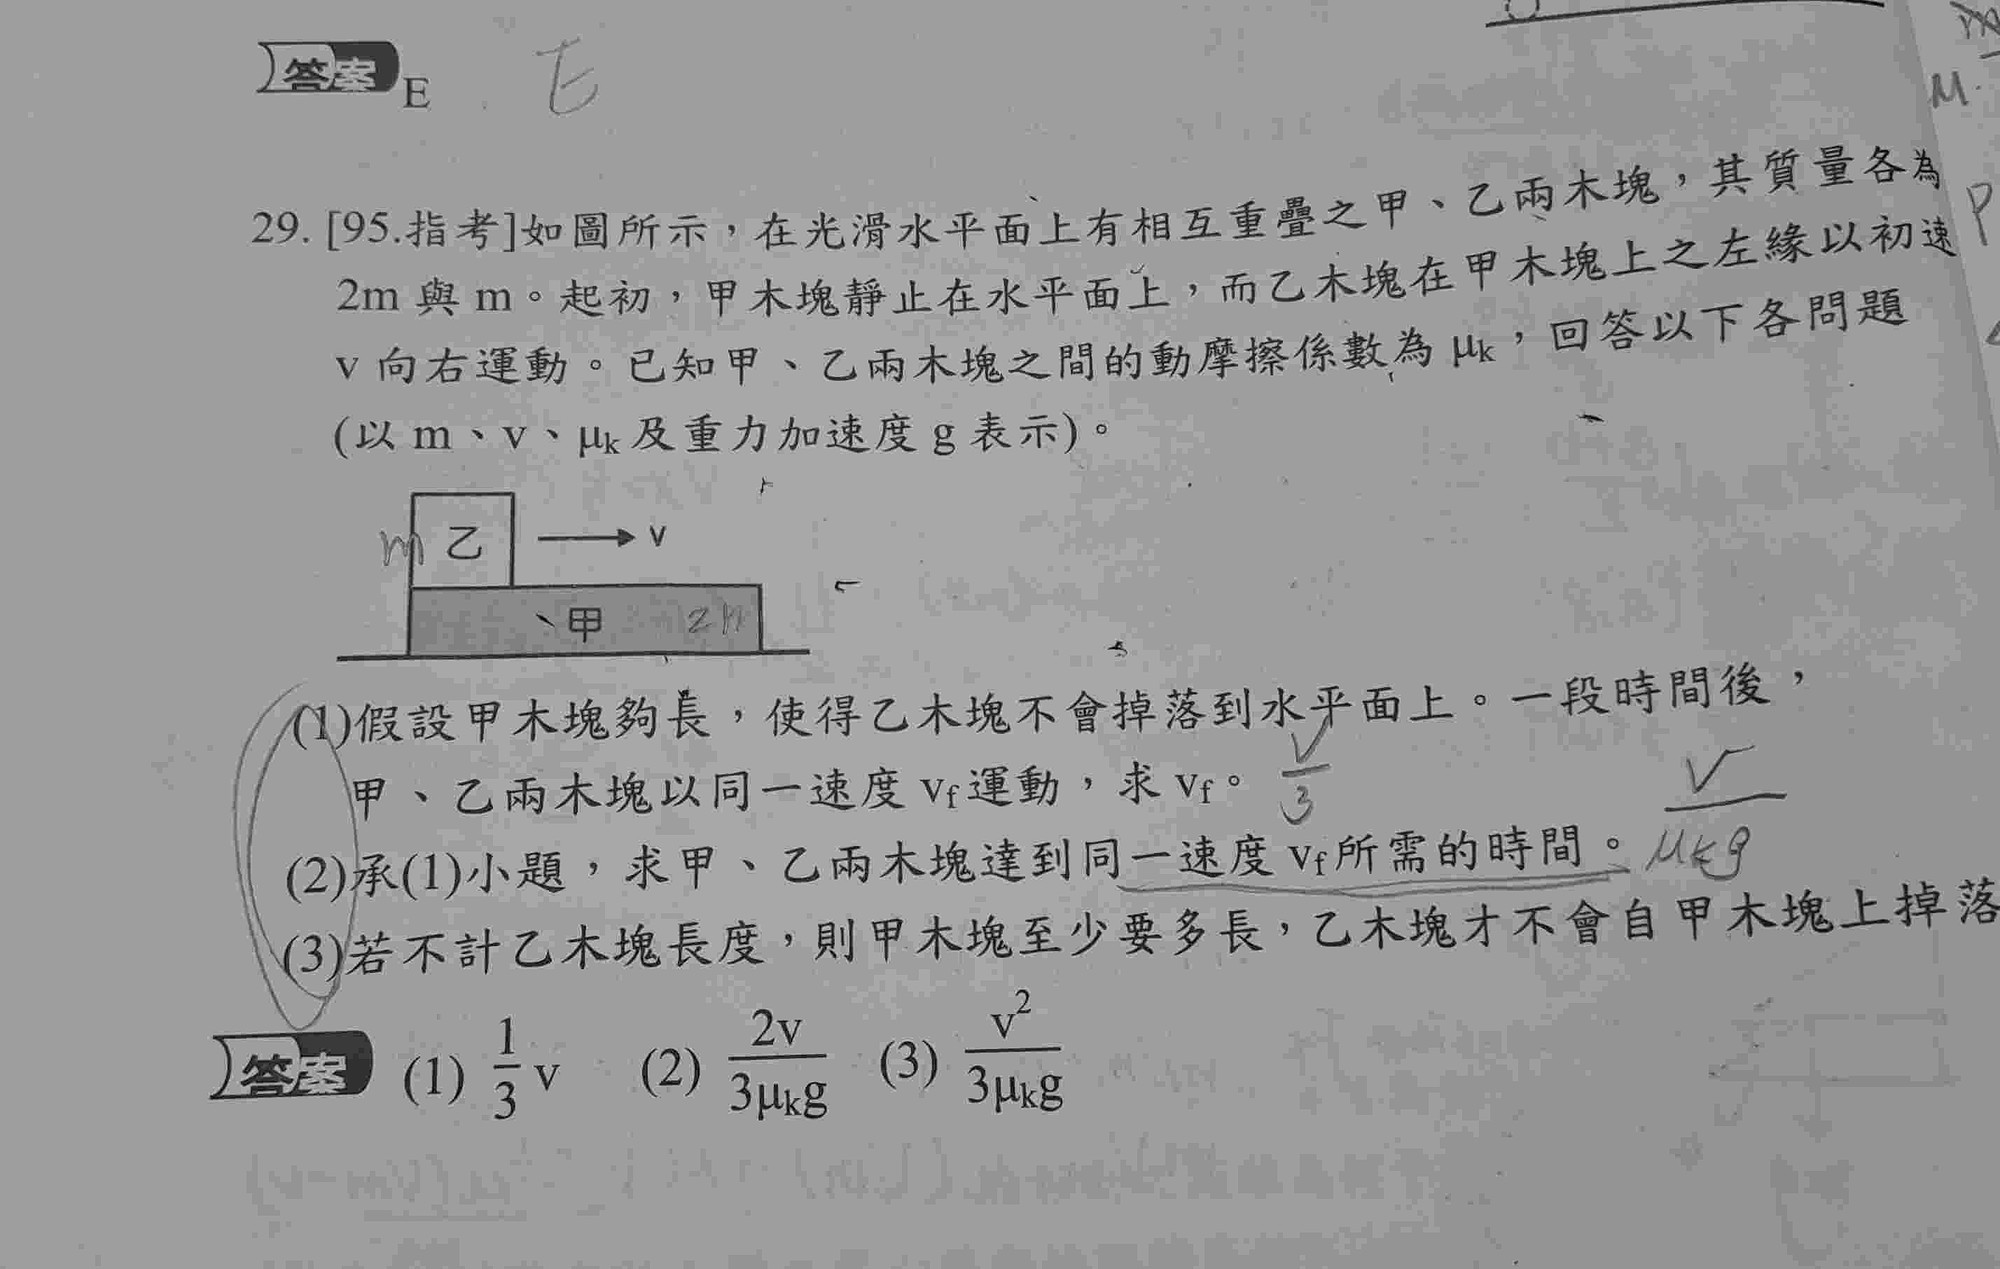 答案 E E
M
29. [95.指考]如圖所示，在光滑水平面上有相互重疊之甲、乙兩木塊，其質量各為
P
2m 與 m。起初，甲木塊靜止在水平面上，而乙木塊在甲木塊上之左緣以初速
v 向右運動。已知甲、乙兩木塊之間的動摩擦係數為 μk，回答以下各問題
(以 m、v、μk 及重力加速度 g 表示)。
m 乙 v
甲 2m
(1)假設甲木塊夠長，使得乙木塊不會掉落到水平面上。一段時間後，
甲、乙兩木塊以同一速度 vf 運動，求 vf。 v/3
(2)承(1)小題，求甲、乙兩木塊達到同一速度 vf 所需的時間。 v/μkg
(3)若不計乙木塊長度，則甲木塊至少要多長，乙木塊才不會自甲木塊上掉落
答案 (1) 1/3 v (2) 2v/3μkg (3) v²/3μkg